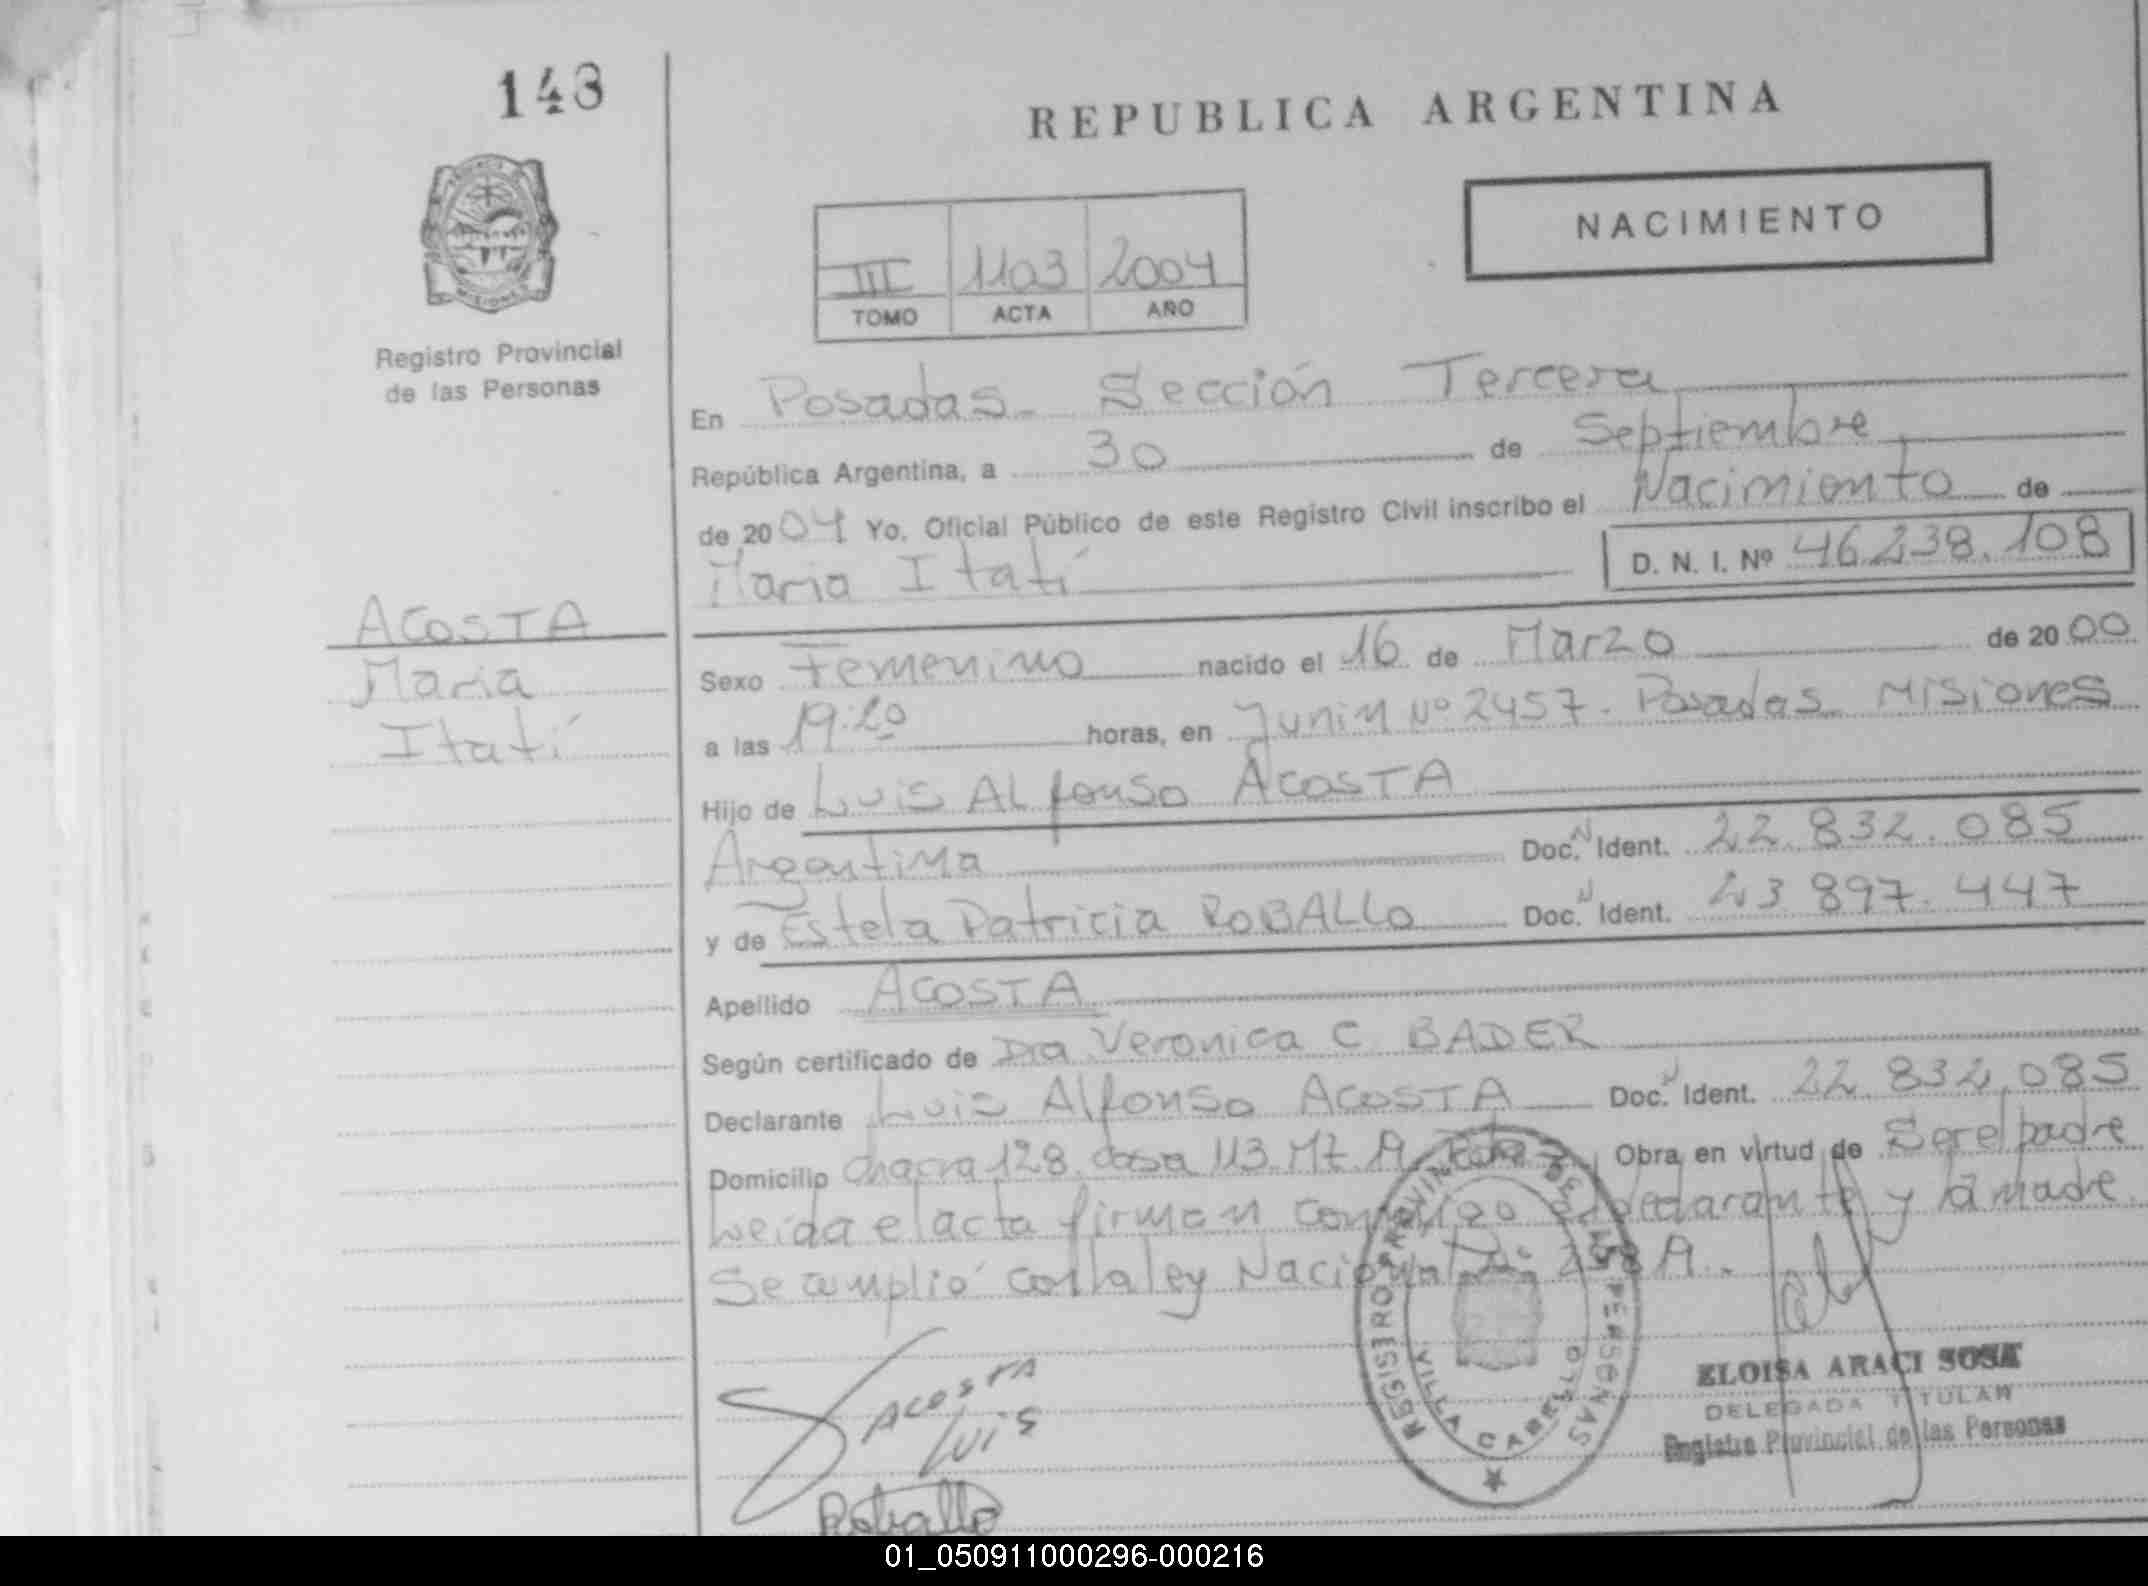 143
REPUBLICA ARGENTINA
NACIMIENTO
III 1103 2004
TOMO ACTA AÑO
MISIONES
Registro Provincial
de las Personas
En Posadas - Sección Tercera
República Argentina, a 30 de Septiembre
de 2004 Yo. Oficial Público de este Registro Civil inscribo el Nacimiento de
Maria Itatí
D. N. I. Nº 46.238.108
ACOSTA
Maria
Itatí
Sexo Femenino nacido el 16 de Marzo de 2000
a las 19:20 horas, en Junin Nº 2457. Posadas Misiones
Hijo de Luis Alfonso ACOSTA
Argentina Doc. N Ident. 22.832.085
y de Estela Patricia ROBALLO Doc. N Ident. 23 897.447
Apellido ACOSTA
Según certificado de Dra Veronica C. BADER
Declarante Luis Alfonso ACOSTA Doc. N Ident. 22.832.085
Domicilio chacra 128 casa 113 Mz A Obra en virtud de Ser el padre
Leida el acta firman conmigo declarante y la madre
Se amplió con la ley Nacional
ACOSTA
LUIS
Roballo
REGISTRO PROVINCIAL DE LAS PERSONAS
VILLA CABELLO
ELOISA ARACI SOSA
DELEGADA TITULAR
Registro Provincial de las Personas
01_050911000296-000216